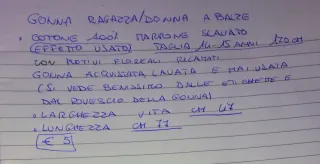 GONNA RAGAZZA/DONNA A BALZE
• COTONE 100% MARRONE SLAVATO
(EFFETTO USATO) TAGLIA 14-15 ANNI 170 CM
CON MOTIVI FLOREALI RICAMATI
GONNA ACQUISTATA, LAVATA E MAI USATA
(SI VEDE BENISSIMO DALLE ETICHETTE E
DAL ROVESCIO DELLA GONNA)
• LARGHEZZA VITA CM 47
• LUNGHEZZA CM 77
€ 5